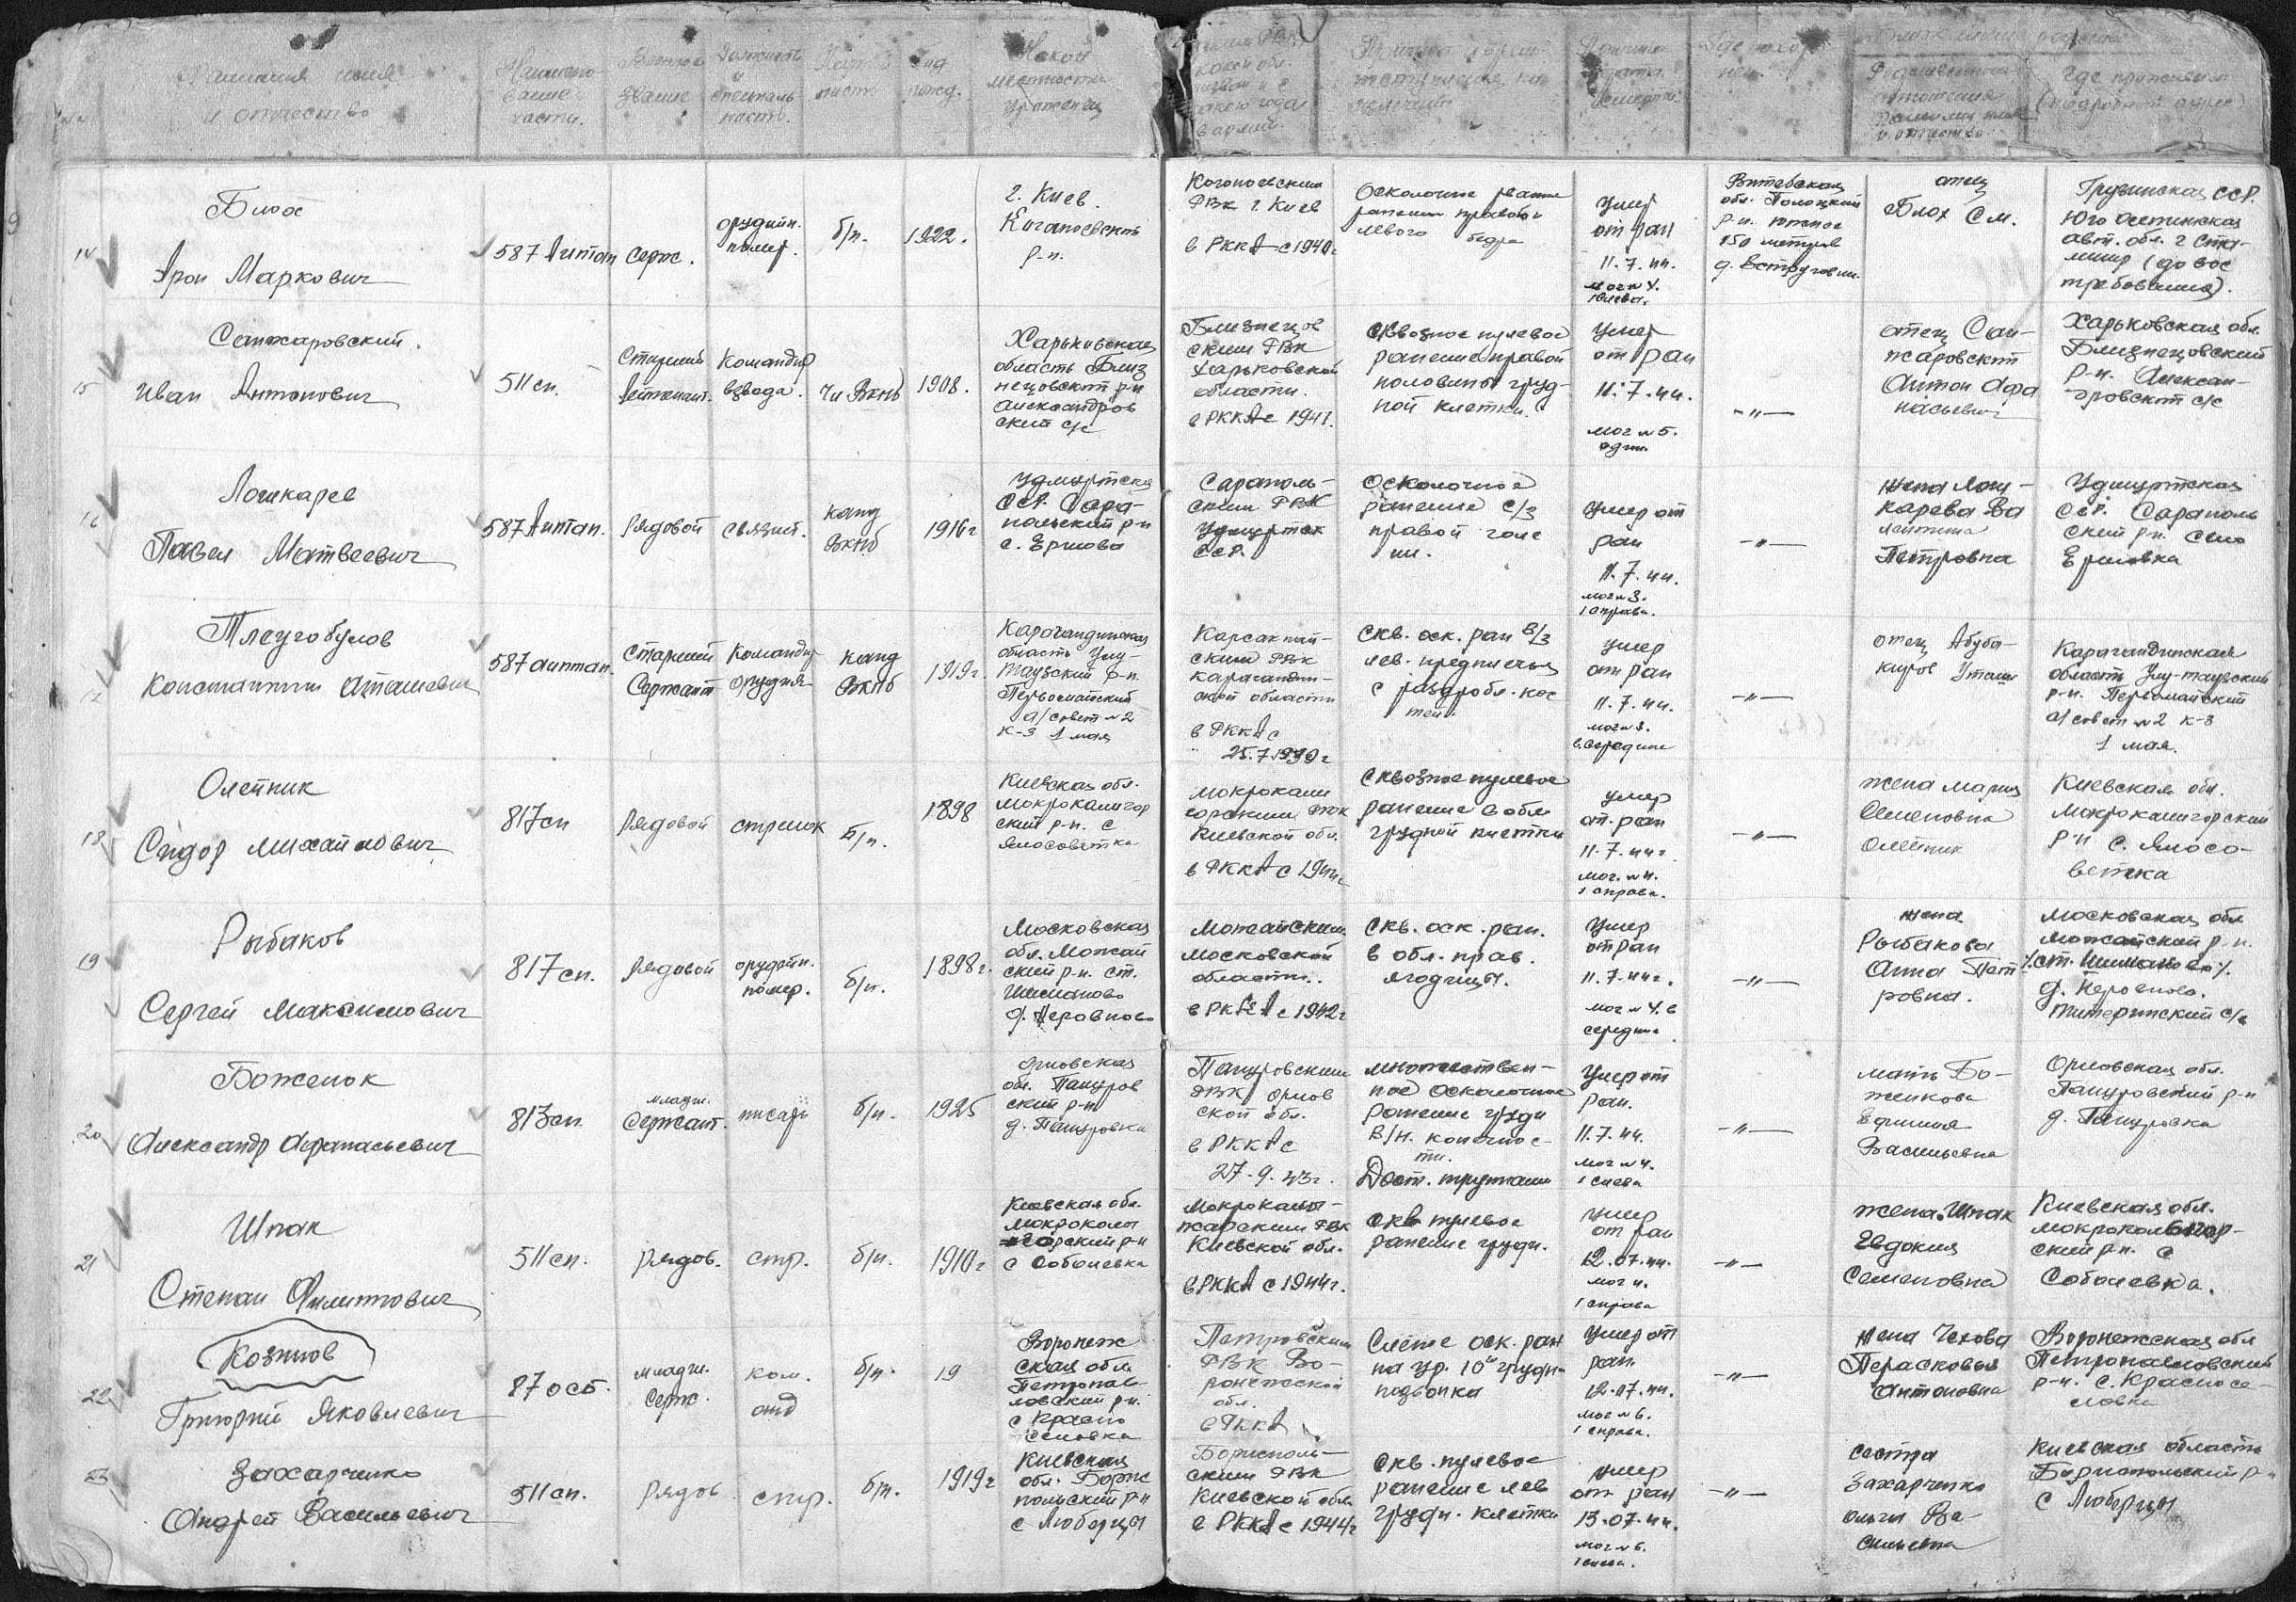 Фамилия имя
и отчество
Наимено-
вание
части.
Военное
звание
Должность
и
специаль-
ность.
Год
рожд.
Какой
местности
уроженец
Причина
дата
смерти
Где
Родственное
отношение
Фамилия имя
и отчество
Где проживает
(подробный адрес)
14
Блох
Арон Маркович
587 Аиптап
Серж.
орудийн.
номер.
б/п.
1922.
г. Киев.
Кагановский
р-н.
Кагановским
РВК г. Киев
в РККА с 1940г
Осколочное рваное
ранение правого и
левого бедра
Умер
от ран
11.7.44.
мог № 4.
1 слева.
Витебская
обл. Полоцкий
р-н. южнее
150 метров
д.
отец
Блох С.М.
Грузинская ССР.
Юго Осетинская
авт. обл. г Ста-
линир (до вос
требования).
15
Санжаровский.
Иван Антонович
511 сп.
Старший
лейтенант.
Командир
взвода.
Чл ВКПб
1908.
Харьковская
область Близ
нецовский р-н
Александров
ский с/с
Близнецов
ским РВК
Харьковской
области.
в РККА с 1941.
Сквозное пулевое
ранение правой
половины груд-
ной клетки.
Умер
от ран
11.7.44.
мог № 5.
один.
-"-
отец Сан-
жаровский
Антон Афа
насьевич
Харьковская обл.
Близнецовский
р-н. Алексан-
дровский с/с
16
Лошкарев
Павел Матвеевич
587 Аиптап.
Рядовой
связист.
канд
ВКПб
1916г
Удмуртская
ССР. Сара-
пульский р-н
с. Ершова
Сарапуль-
ским РВК
Удмуртск
ССР.
Осколочное
ранение с/з
правой голе
ни.
Умер от
ран
11.7.44.
мог № 3.
1 справа.
-"-
жена Лош-
карева Ва
лентина
Петровна
Удмуртская
ССР. Сарапуль
ский р-н. село
Ершовка
17
Тлеугобулов
Константин Аташевич
587 аиптап.
Старший
Сержант
Командир
орудия
канд
ВКПб
1919г.
Карагандинская
область Улу-
Тауский р-н
Первомайский
а/совет № 2
к-з 1 мая
Карсакпай-
ским РВК
Карагандин-
ской области
в РККА с
25.7.1939г
Скв. оск. ран в/з
лев. предплечья
с раздробл. кос
тей.
Умер
от ран
11.7.44.
мог № 3.
в середине
-"-
отец Абуба-
киров Уташ
Карагандинская
область Улу-тауский
р-н. Первомайский
а/совет № 2 к-з
1 мая.
18
Олейник
Сидор Михайлович
817 сп
Рядовой
стрелок
б/п.
1898
Киевская обл.
Мокрокалигор
ский р-н. с
Ялосоветка
Мокрокали
горским РВК
Киевской обл.
в РККА с 1944г
Сквозное пулевое
ранение в обл
грудной клетки
Умер
от ран
11.7.44г.
мог. № 4.
1 справа.
-"-
жена Мария
Семеновна
Олейник
Киевская обл.
Мокрокалигорский
р-н с. Ялосо-
ветка
19
Рыбаков
Сергей Максимович
817 сп.
Рядовой
орудийн.
номер.
б/п.
1898г.
Московская
обл. Можай
ский р-н. ст.
Шиманово
д. Неровново
Можайским
Московской
области.
в РККА с 1942г
Скв. оск. ран.
в обл. прав.
ягодицы.
Умер
от ран
11.7.44г.
мог № 4. в
середине
-"-
жена
Рыбакова
Анна Пет-
ровна.
Московская обл
Можайский р-н.
ст. Шиманово
д. Неровново.
с/с
20
Боженок
Александр Афанасьевич
813 сп.
младш.
Сержант.
писарь
б/п.
1925
Орловская
обл. Пацуров
ский р-н
д. Пацуровка
Пацуровским
РВК Орлов
ской обл.
в РККА с
27.9.43г.
множествен-
ное осколочное
ранение груди
в/н. конечнос-
ти.
Дост. трупами
Умер от
ран.
11.7.44.
мог № 4.
1 слева
-"-
мать Бо-
женкова
Ефимия
Васильевна
Орловская обл.
Пацуровский р-н
д. Пацуровка
21
Шпак
Степан Филиппович
511 сп.
рядов.
стр.
б/п.
1910г
Киевская обл.
Мокрокалы
горский р-н
с Соболевка
Мокрокалы-
жарским РВК
Киевской обл.
в РККА с 1944г.
скв пулевое
ранение груди.
умер
от ран
12.07.44.
мог 4.
1 справа
-"-
жена. Шпак
Евдокия
Семеновна
Киевская обл.
Мокрокалыгор-
ский р-н. с
Соболевка.
22
Козлов
Григорий Яковлевич
87 осб.
младш.
Серж.
ком.
отд
б/п.
19
Воронеж
ская обл.
Петропав-
ловский р-н.
с Красно
селовка
Петровским
РВК Во-
ронежской
обл.
в РККА
Слепое оск. ран
на ур. 10го грудн
позвонка
Умер от
ран.
12.07.44.
мог № 6.
1 справа.
-"-
жена Чехова
Перасковья
Антоновна
Воронежская обл
Петропавловский
р-н. с. Красносе-
ловка
23
Захарченко
Андрей Васильевич
511 сп.
рядов
стр.
б/п.
1919г
Киевская
обл. Борис
польский р-н
с Люберцы
Борисполь-
ским РВК
Киевской обл.
в РККА с 1944г
скв. пулевое
ранение лев
грудн. клетки
умер
от ран
13.07.44.
мог № 6.
1 слева.
-"-
сестра
Захарченко
Ольга Ва-
сильевна
Киевская область
Бориспольский р-н
с Люберцы